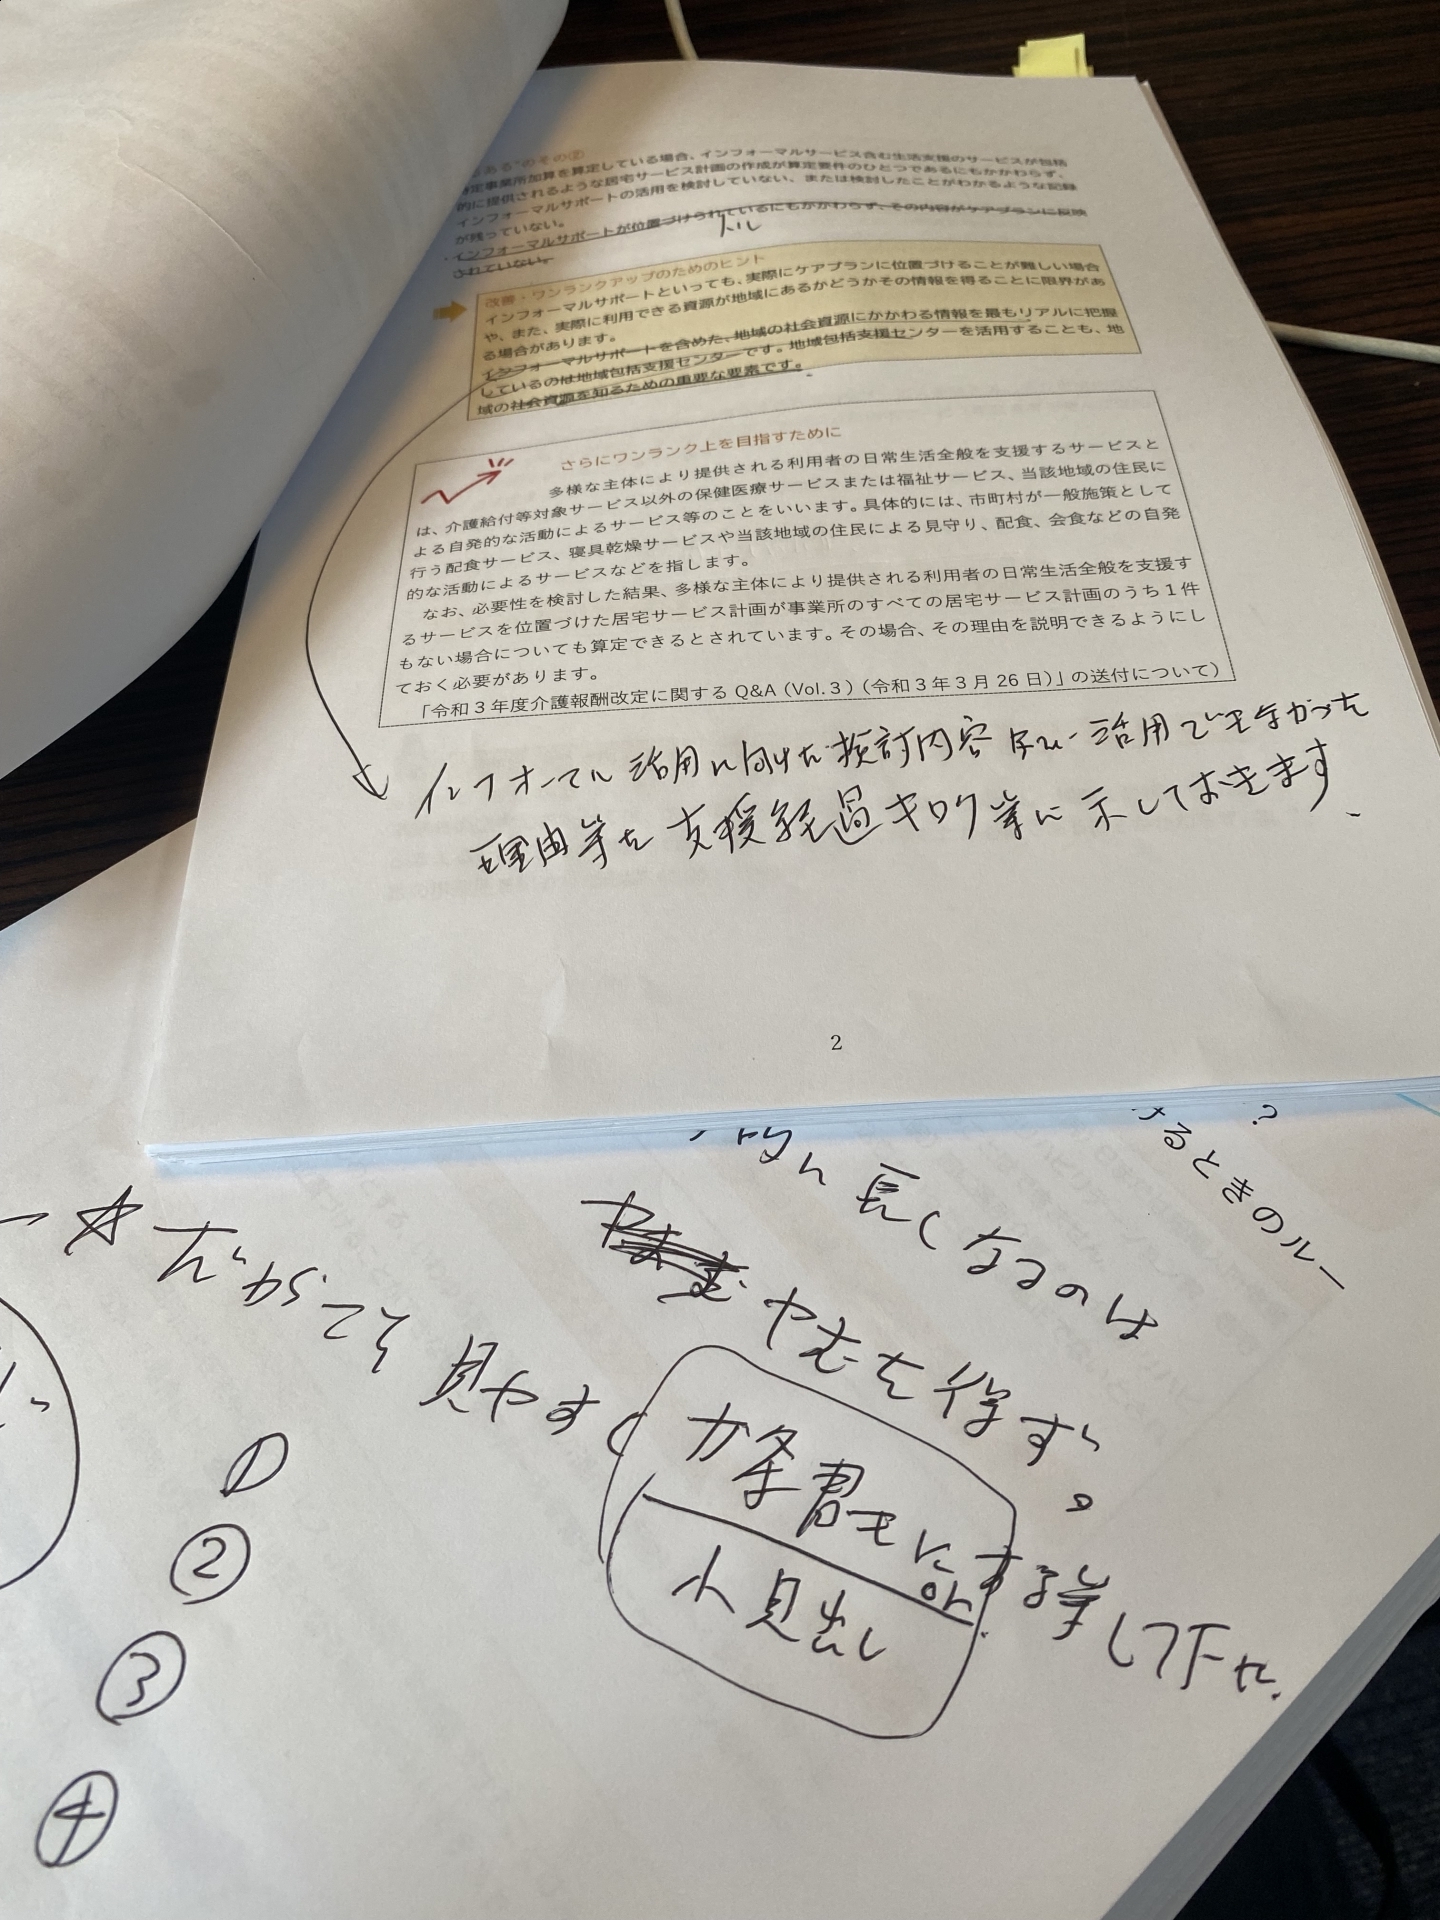 あるある"のその②
特定事業所加算を算定している場合、インフォーマルサービス含む生活支援のサービスが包括
的に提供されるような居宅サービス計画の作成が算定要件のひとつであるにもかかわらず、
インフォーマルサポートの活用を検討していない、または検討したことがわかるような記録
が残っていない。
・インフォーマルサポートが位置づけられているにもかかわらず、その内容がケアプランに反映
されていない。
トル
改善・ワンランクアップのためのヒント
インフォーマルサポートといっても、実際にケアプランに位置づけることが難しい場合
や、また、実際に利用できる資源が地域にあるかどうかその情報を得ることに限界があ
る場合があります。
インフォーマルサポートを含めた、地域の社会資源にかかわる情報を最もリアルに把握
しているのは地域包括支援センターです。地域包括支援センターを活用することも、地
域の社会資源を知るための重要な要素です。
さらにワンランク上を目指すために
多様な主体により提供される利用者の日常生活全般を支援するサービスと
は、介護給付等対象サービス以外の保健医療サービスまたは福祉サービス、当該地域の住民に
よる自発的な活動によるサービス等のことをいいます。具体的には、市町村が一般施策として
行う配食サービス、寝具乾燥サービスや当該地域の住民による見守り、配食、会食などの自発
的な活動によるサービスなどを指します。
なお、必要性を検討した結果、多様な主体により提供される利用者の日常生活全般を支援す
るサービスを位置づけた居宅サービス計画が事業所のすべての居宅サービス計画のうち１件
もない場合についても算定できるとされています。その場合、その理由を説明できるようにし
ておく必要があります。
「令和３年度介護報酬改定に関する Q&A（Vol.３）（令和３年３月 26 日）」の送付について）
インフォーマル 活用に向けた検討内容 及び 活用できなかった
理由等を 支援経過キロク等に 示しておきます、
2
？
けるときのルー
的に 長くなるのは
やむを得ず。
☆ だからこそ 見やすく
カ条書きに する等して下さい.
or
小見出し
①
②
③
④